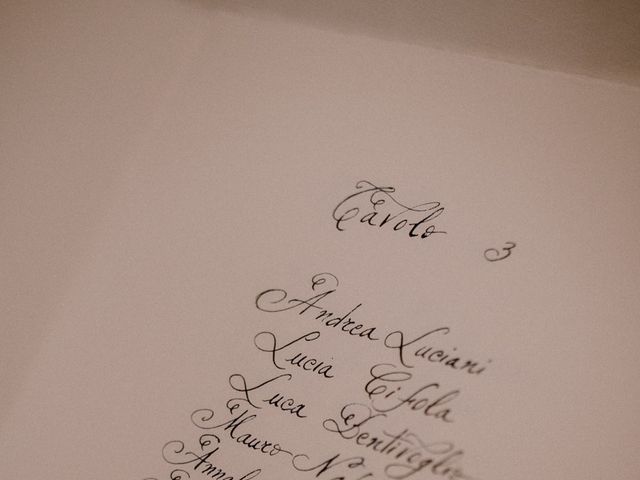 Tavolo 3
Andrea Luciani
Lucia Cifola
Luca Bentivoglio
Mauro